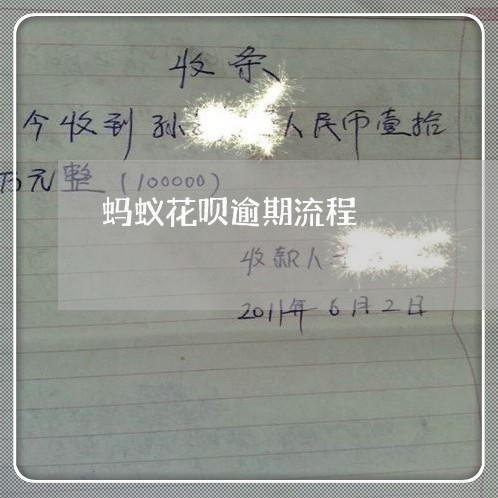 收条
今收到孙 人民币壹拾
万元整(100000)
蚂蚁花呗逾期流程
收款人
2011年6月2日